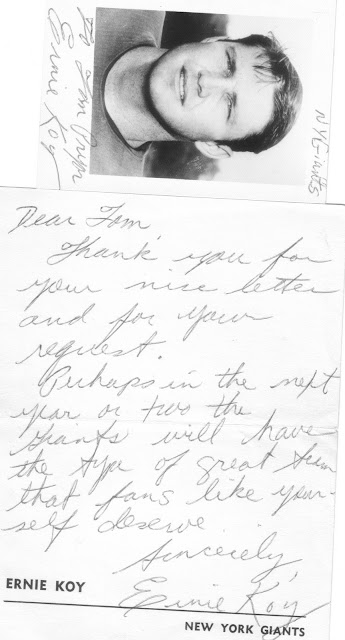 To Tom
Ernie Koy
NYGiants
Dear Tom
Thank you for
your nice letter
and for your
request.
Perhaps in the next
year or two the
Giants will have
the type of great team
that fans like your-
self deserve
Sincerely,
Ernie Koy
ERNIE KOY
NEW YORK GIANTS